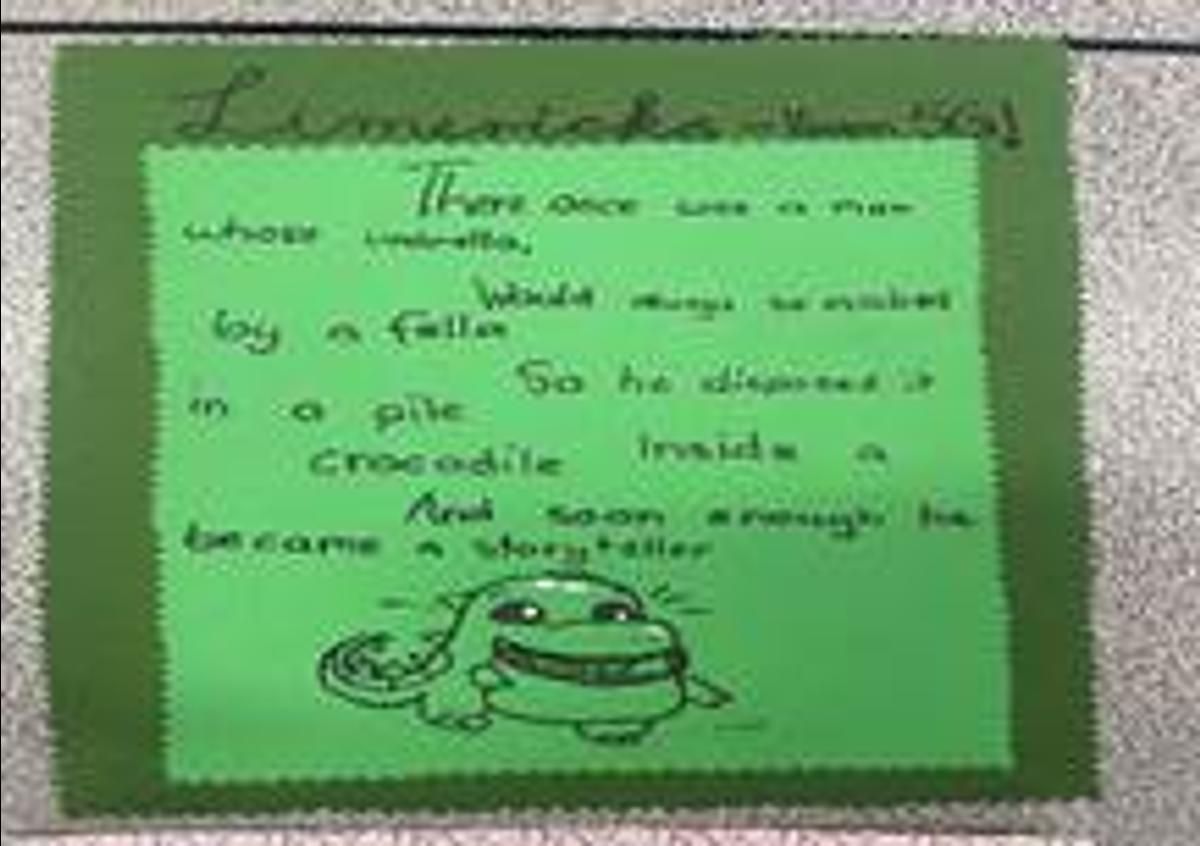 Limericks
There once was a man
whose umbrella,
Would always be
by a fella
So he disposed it
in a pile
crocodile Inside a
And soon enough he
became a storyteller